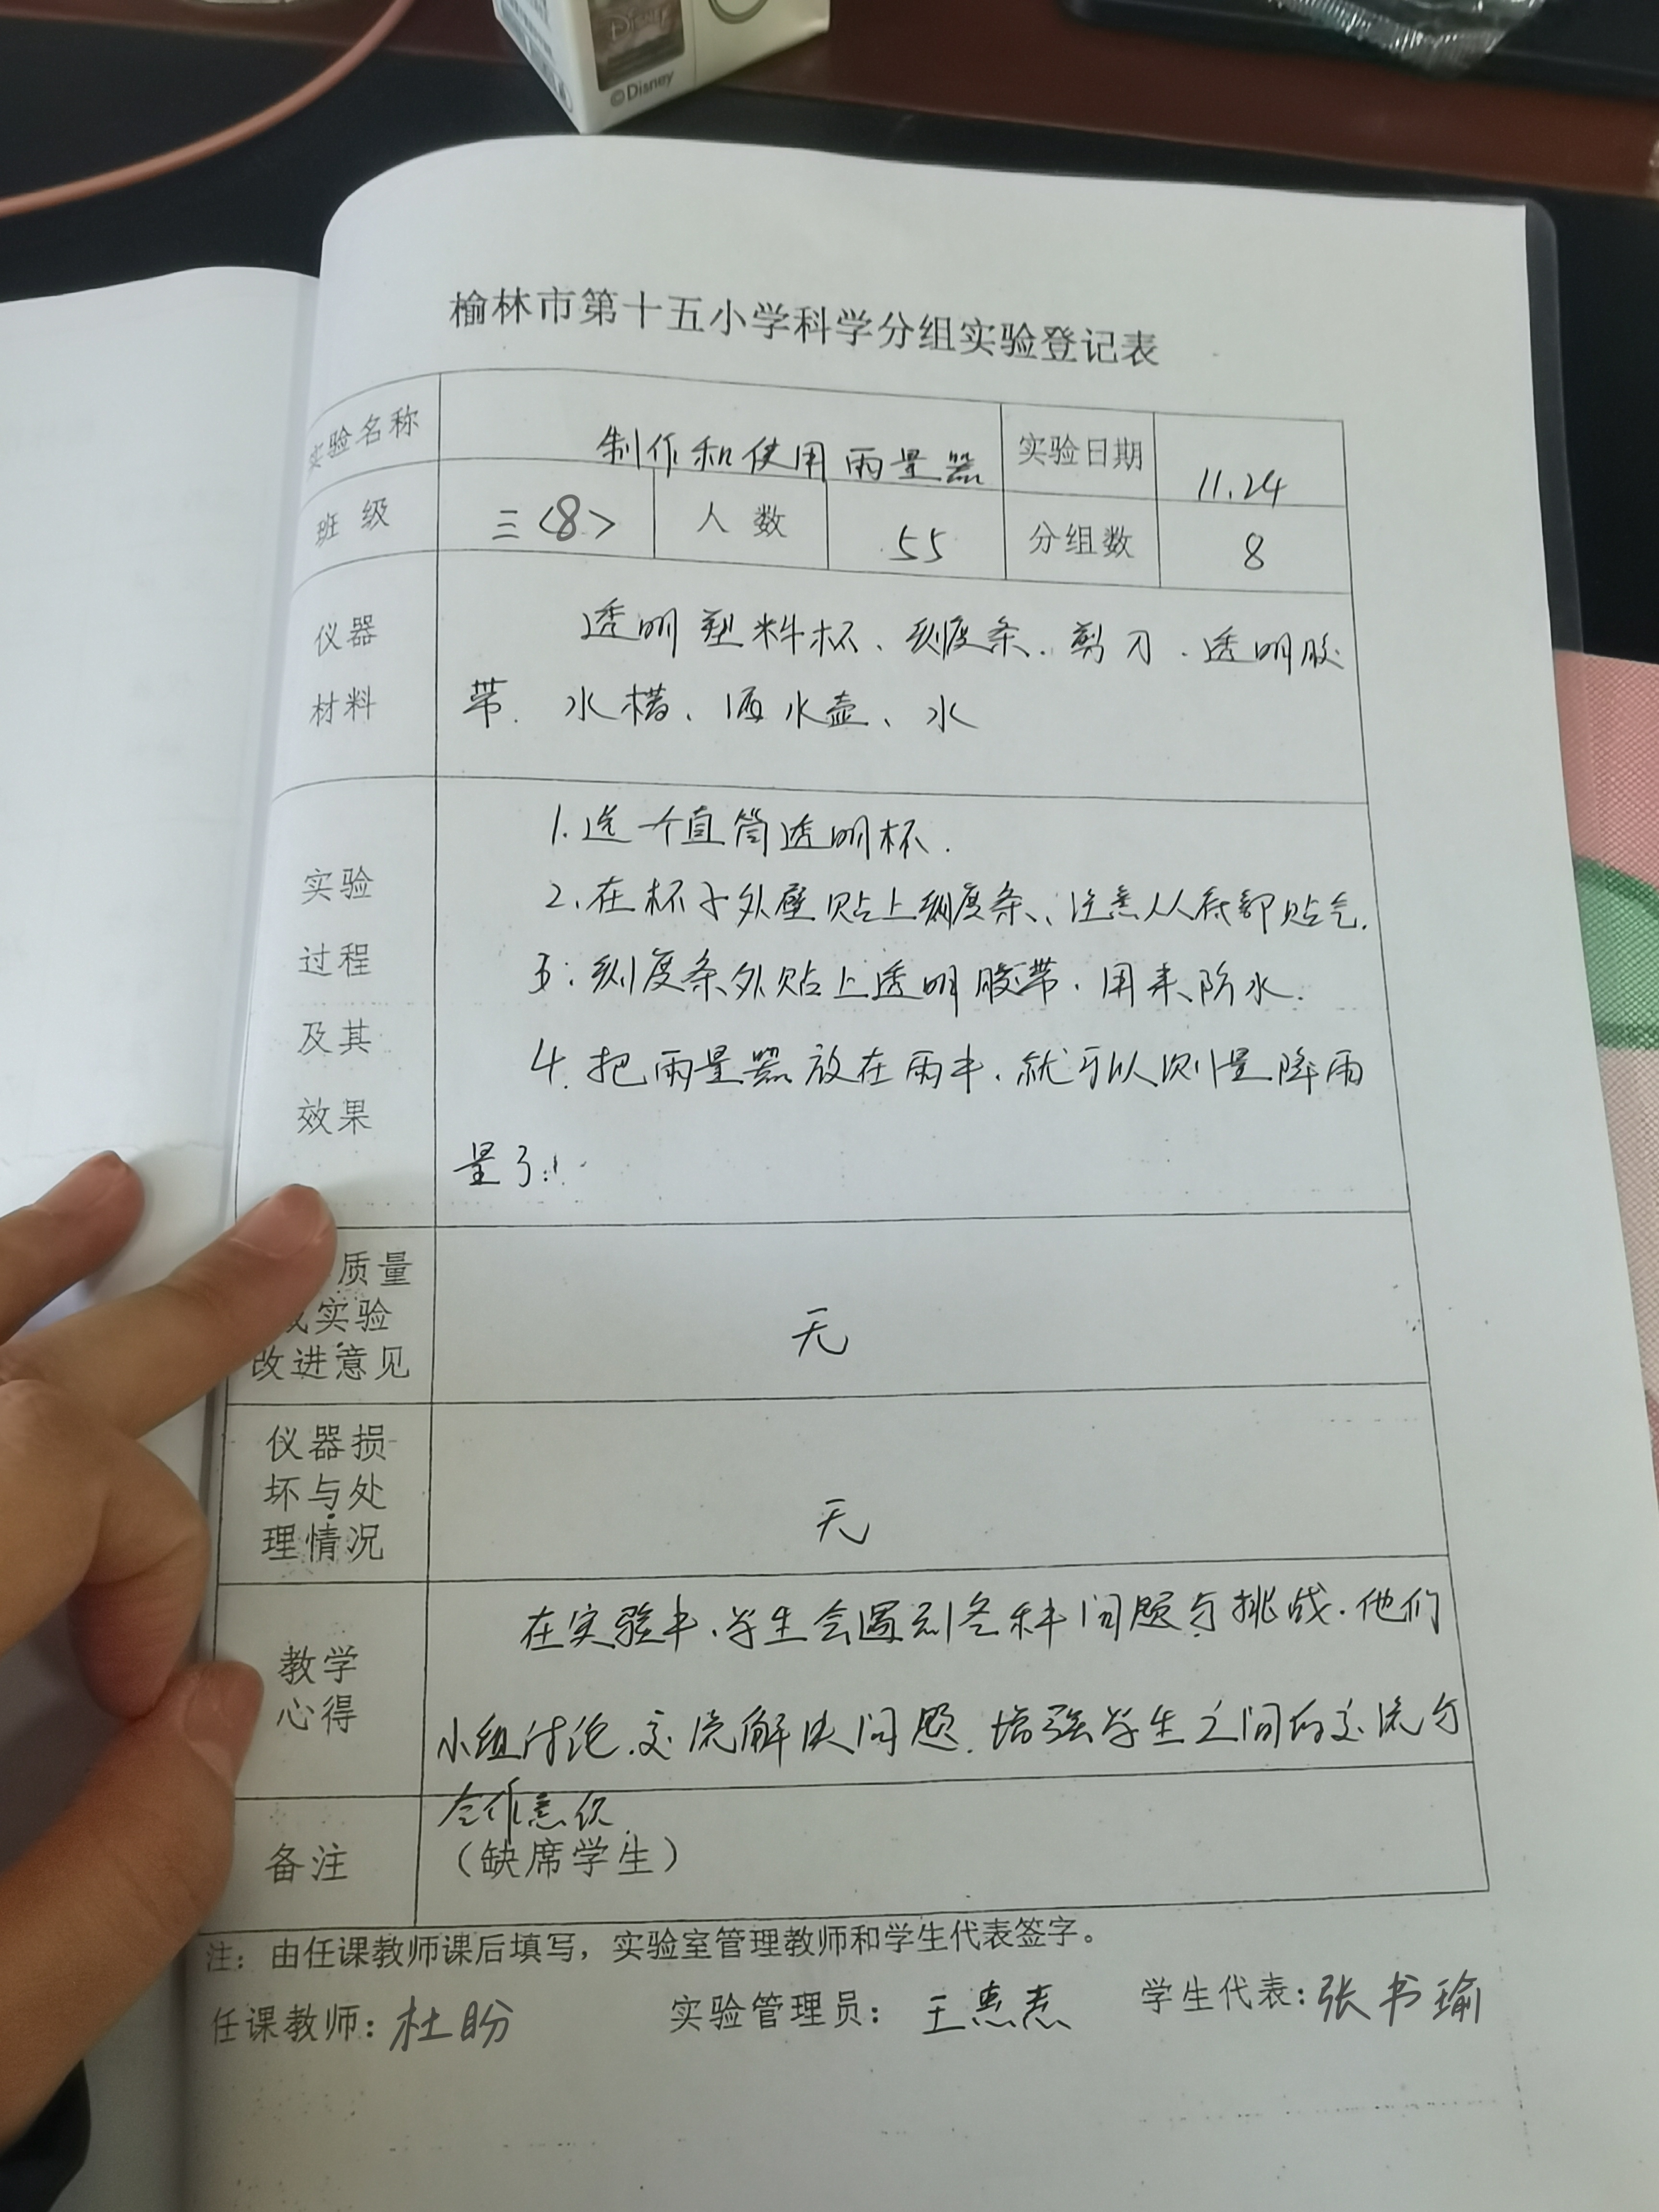 Disney
©Disney
榆林市第十五小学科学分组实验登记表
实验名称 制作和使用雨量器 实验日期 11.24
班级 三<8> 人数 55 分组数 8
仪器 透明塑料杯、刻度条、剪刀、透明胶
材料 带、水槽、洒水壶、水
1.选一个直筒透明杯.
实验 2.在杯子外壁贴上刻度条、注意从底部贴起.
过程 3.刻度条外贴上透明胶带,用来防水.
及其 4.把雨量器放在雨中,就可以测量降雨
效果 量了.
质量
或实验 无
改进意见
仪器损
坏与处 无
理情况
在实验中、学生会遇到各种问题与挑战.他们
教学
心得 小组讨论.交流解决问题.增强学生之间的交流与
合作意识.
备注 (缺席学生)
注:由任课教师课后填写,实验室管理教师和学生代表签字。
任课教师:杜盼 实验管理员:王 学生代表:张书瑜